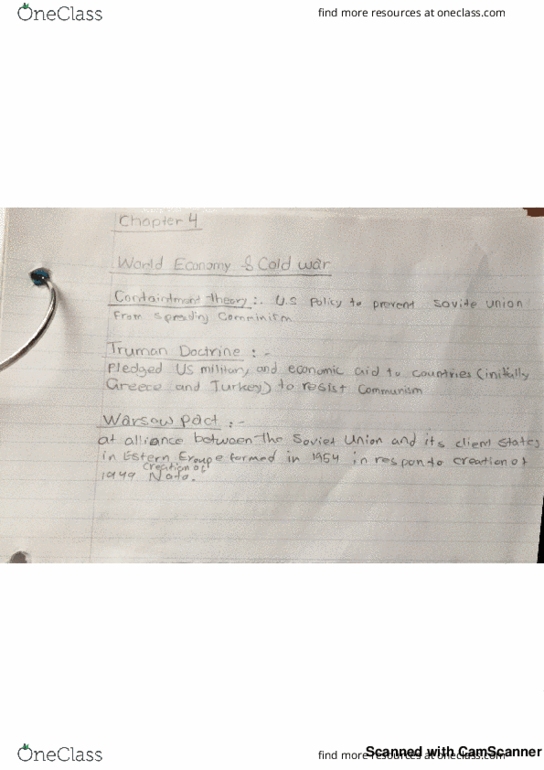 OneClass
find more resources at oneclass.com
Chapter 4
World Economy & Cold war
Containtment theory :. U.S Policy to prevent Sovite union
from spreading Comminism
Truman Doctrine : -
Pledged US military and economic aid to countries (initially
Greece and Turkey) to resist Communism
Warsaw pact : -
at alliance between the Soviet Union and its client states
in Estern Eroupe formed in 1954 in respon to creation of
creation of
1949 Nato.
OneClass
find more resources at oneclass.com
Scanned with CamScanner